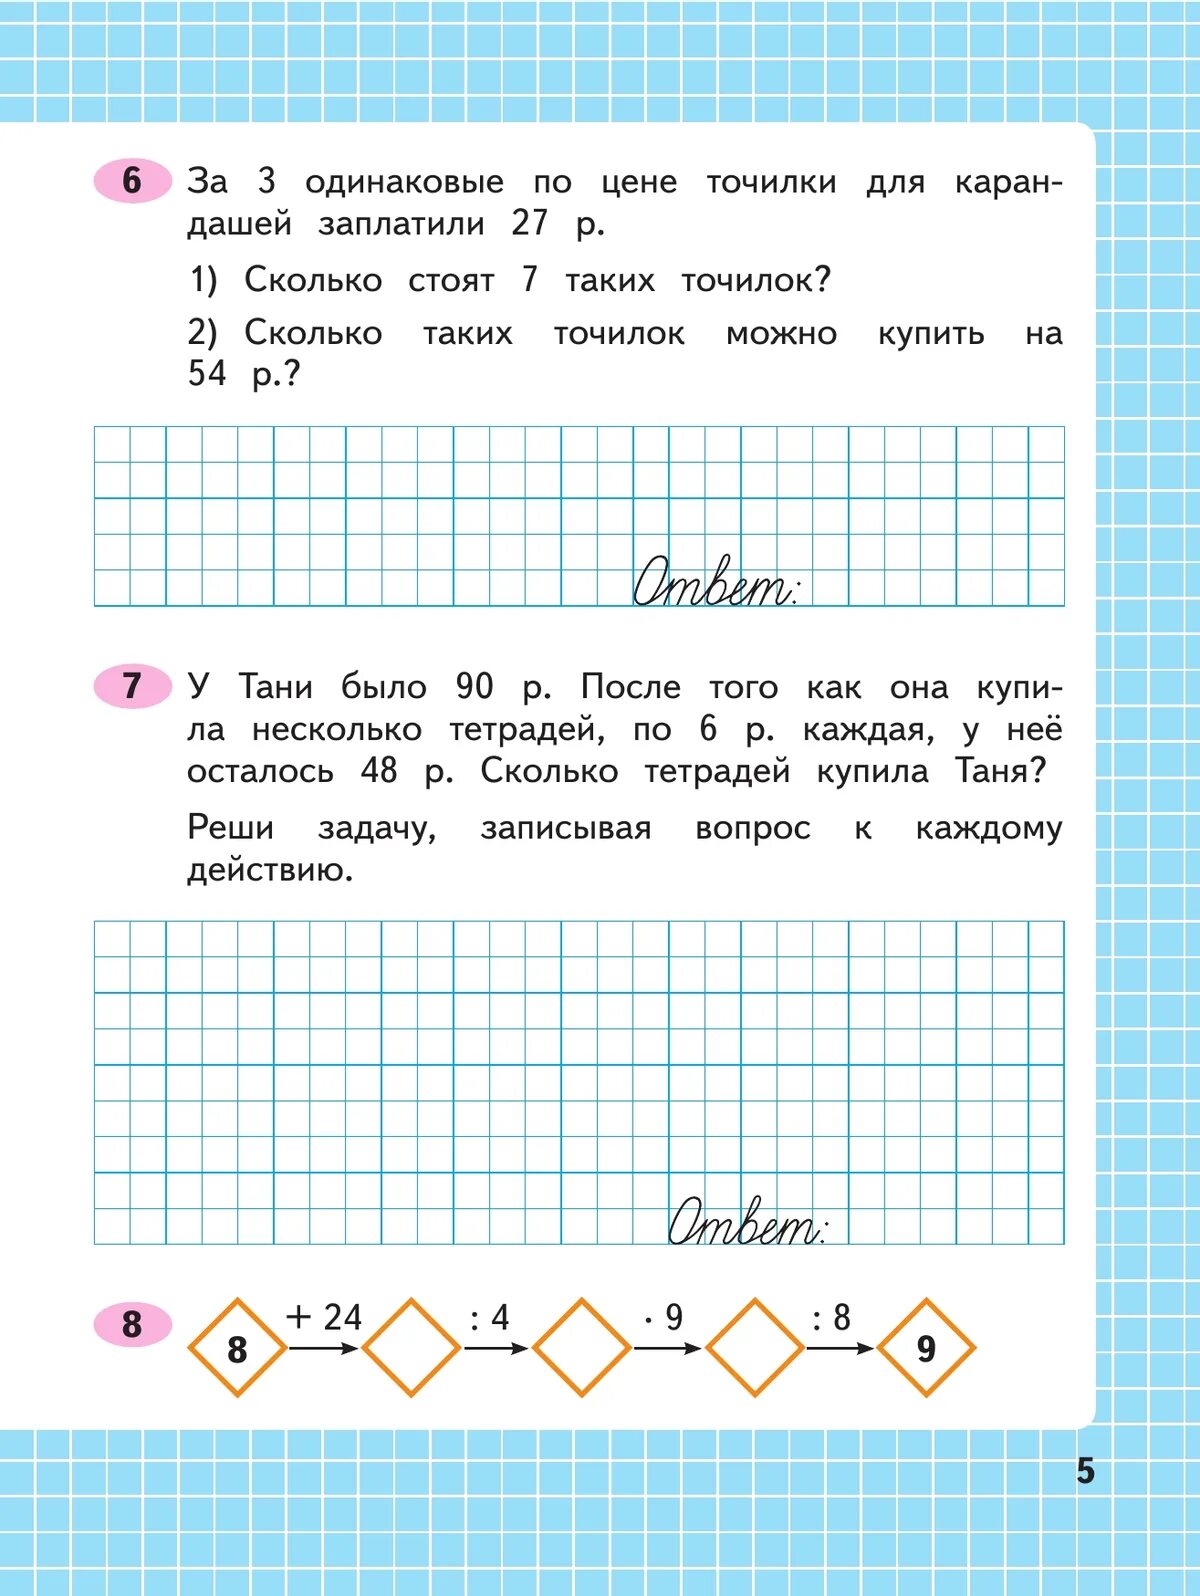 6 За 3 одинаковые по цене точилки для каран-
дашей заплатили 27 р.
1) Сколько стоят 7 таких точилок?
2) Сколько таких точилок можно купить на
54 р.?
Ответ:
7 У Тани было 90 р. После того как она купи-
ла несколько тетрадей, по 6 р. каждая, у неё
осталось 48 р. Сколько тетрадей купила Таня?
Реши задачу, записывая вопрос к каждому
действию.
Ответ:
8 8 + 24 : 4 · 9 : 8 9
5